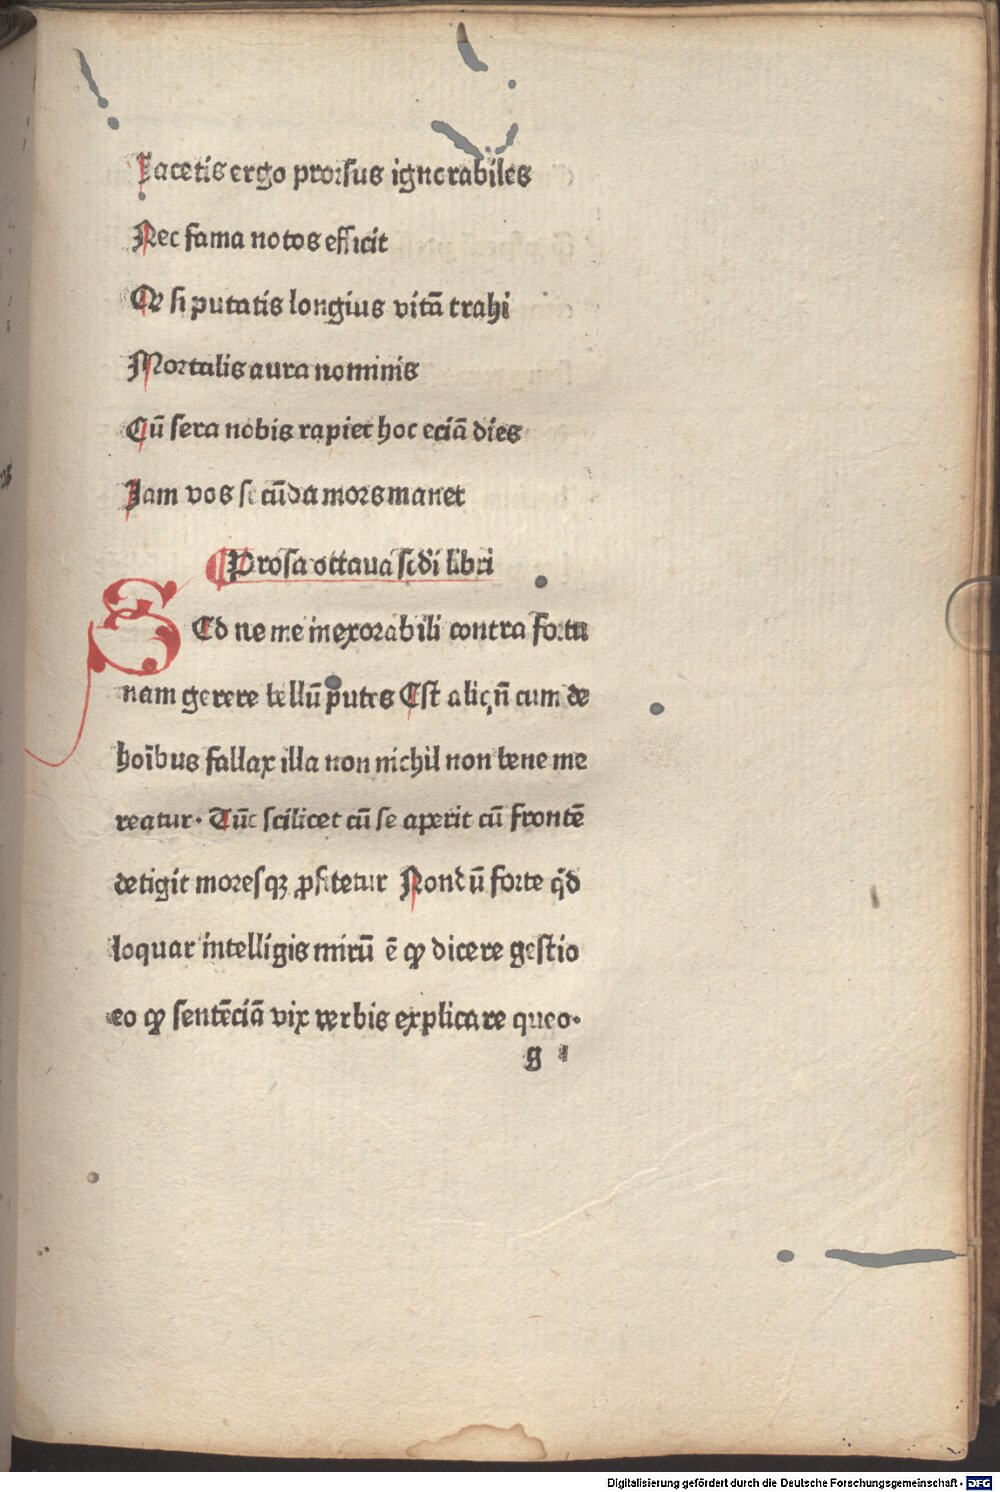 Iacetis ergo prorsus ignorabiles
Nec fama notos efficit
Qe si putatis longius vitā trahi
Mortalis aura nominis
Cū sera nobis rapiet hoc eciā dies
Iam vos secūda mors manet
¶ Prosa ottaua scdi libri
SEd ne me inexorabili contra fortu
nam gerere bellū putes Est aliqn̄ cum de
hoībus fallax illa non nichil non bene me
reatur· Tūc scilicet cū se aperit cū frontē
detigit moresqꝫ ꝓfitetur Nondū forte qd̓
loquar intelligis mirū ē qꝫ dicere gestio
eo qꝫ sentēciā vix verbis explicare queo·
g i
Digitalisierung gefördert durch die Deutsche Forschungsgemeinschaft - DFG